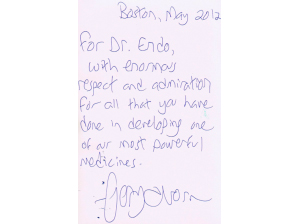 Boston, May 2012
For Dr. Endo,
with enormous
respect and admiration
for all that you have
done in developing one
of our most powerful
medicines.